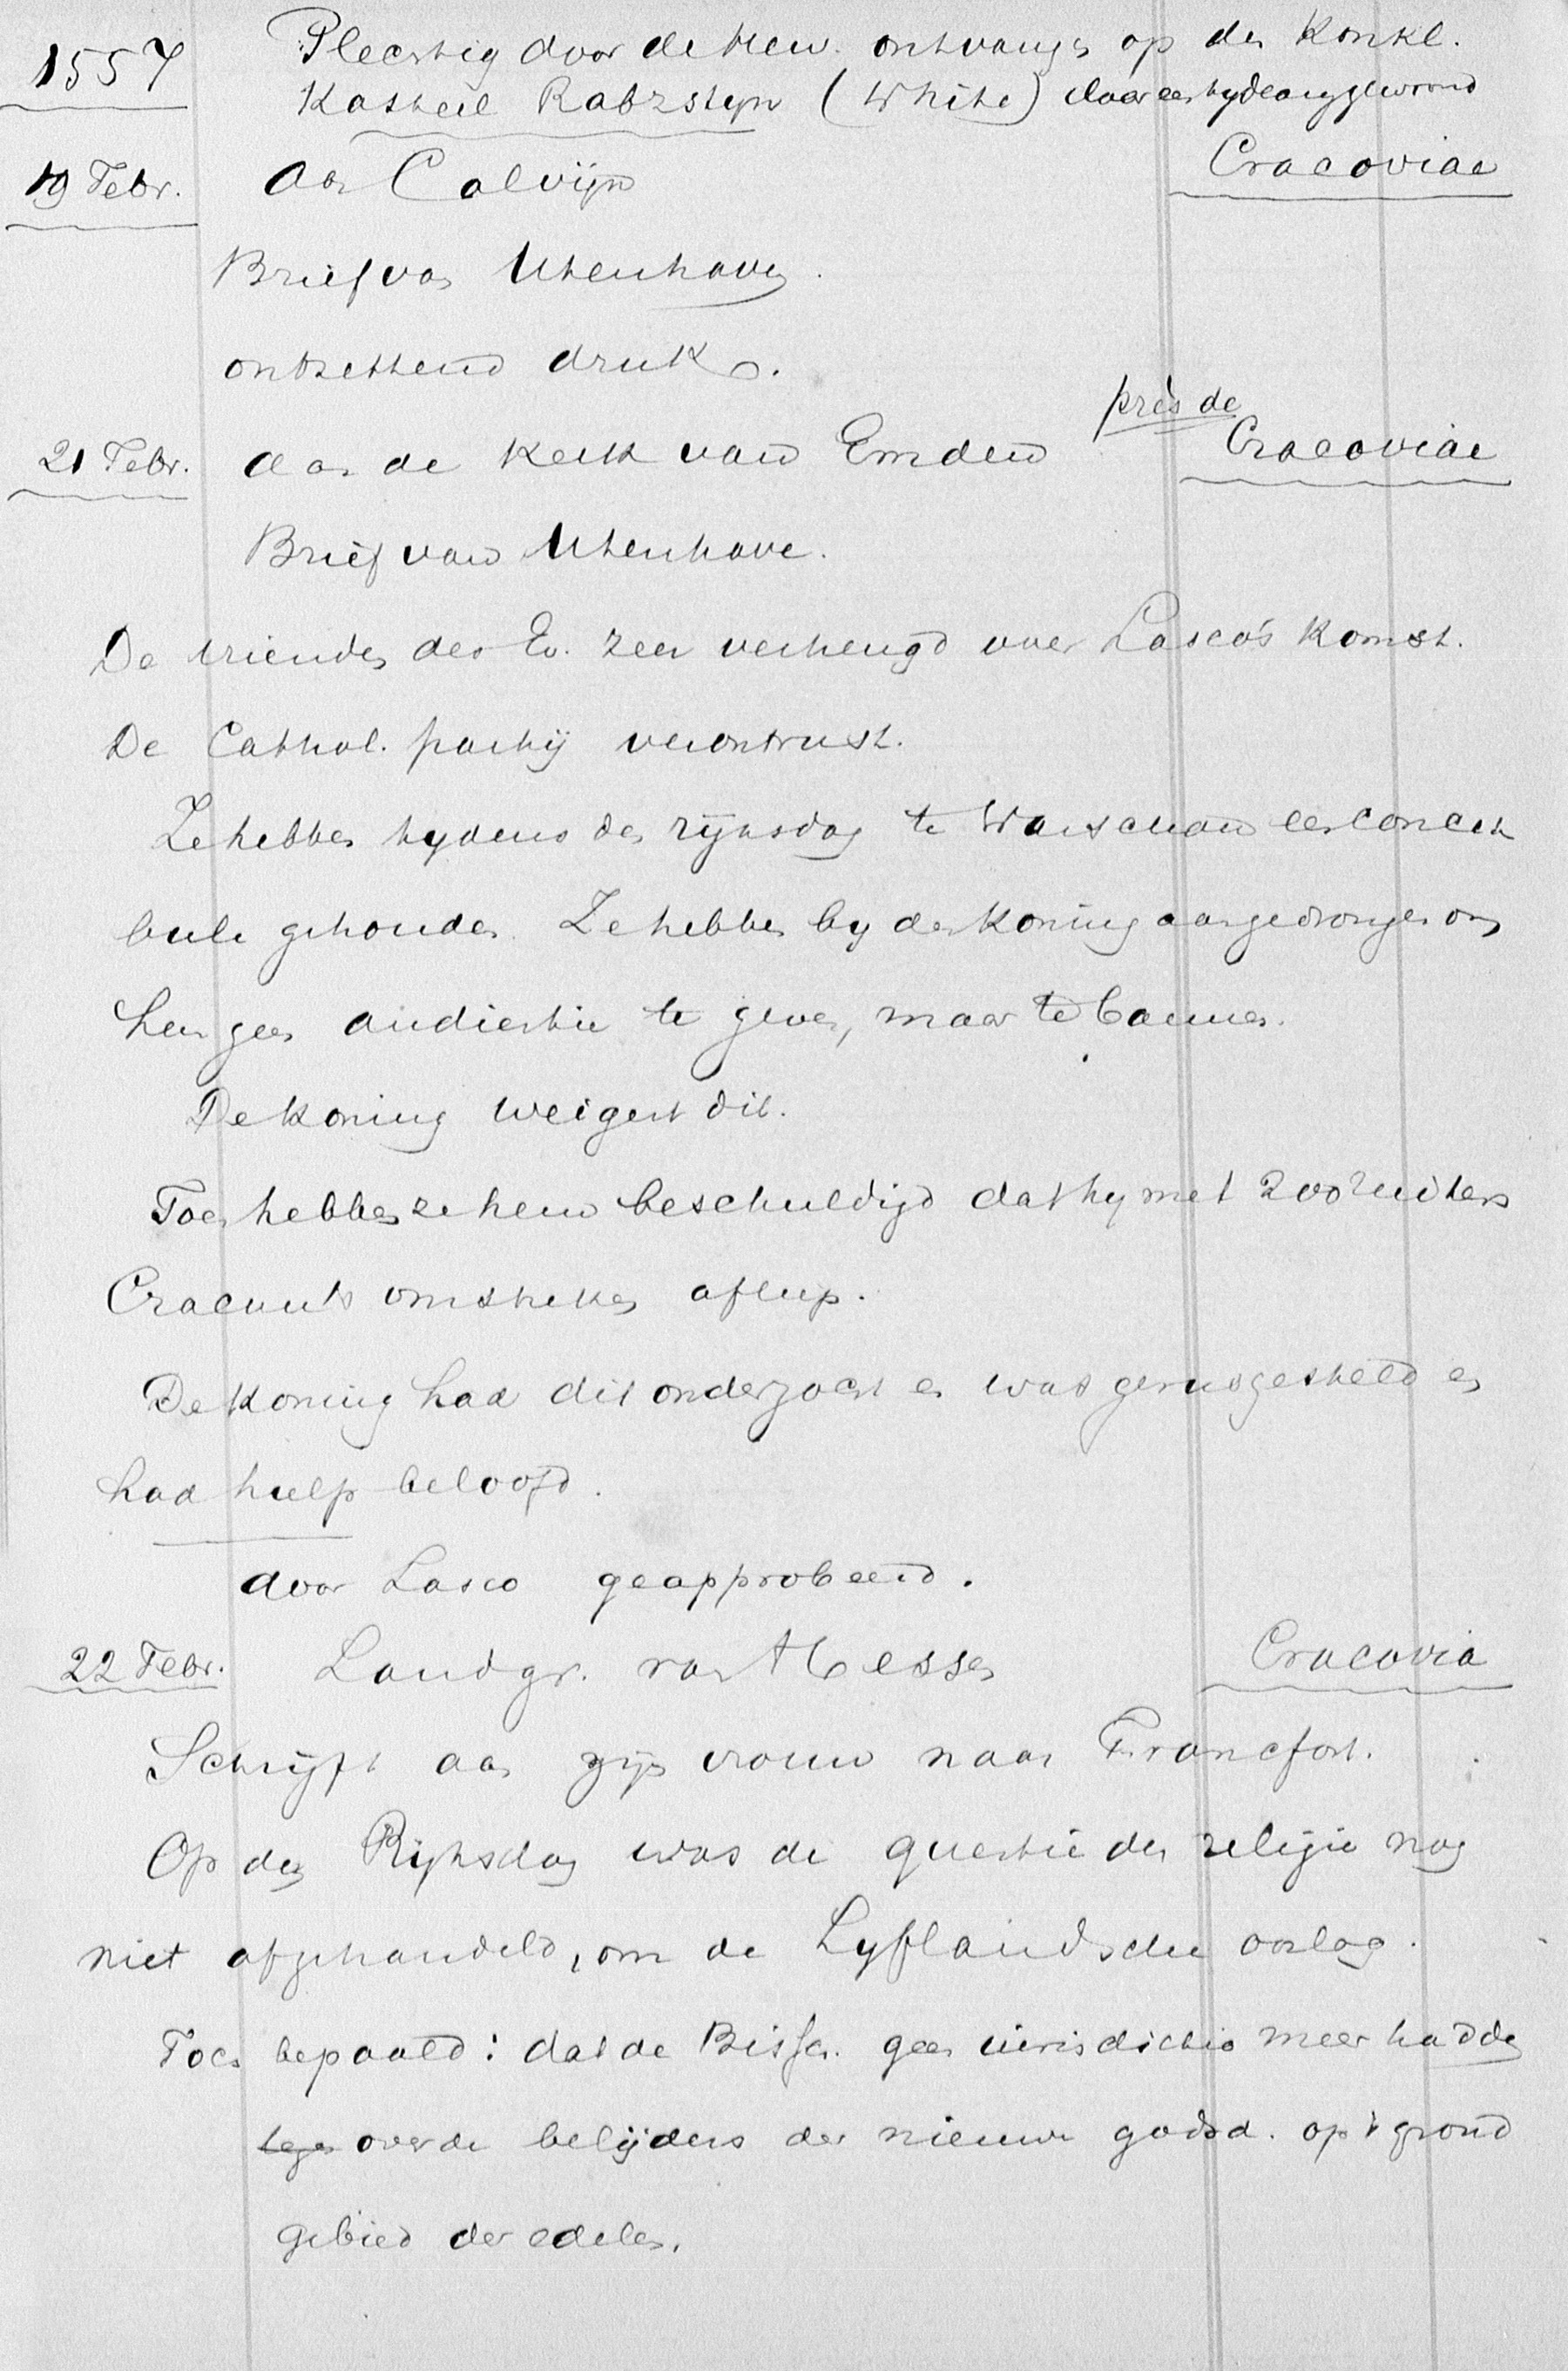 1557
Pleechtig door de Hew. ontvangen op den Konkl.
Kasteel Rabzstyn (White) daar een tyd lang gewoond
19 Febr. aan Calvijn Cracoviae
Brief van Utenhove.
ontzettend druk.
près de
21 Febr. aan de Kerk van Emden Cracoviae
Brief van Utenhove.
De vrienden des Ev. zeer verheugd over Lasco's komst.
De Cathol. partij verontrust.
Ze hebben tydens den rijksdag te Warschau een concen
bule gehouden. Ze hebben by den Koning aangedrongen om
hem geen audientie te geven, maar te bannen.
De koning weigert dit.
Toen hebben ze hem beschuldigd dat hy met 200 ruiters
Cracau's omstreken afliep.
De koning had dit onderzocht en was gerustgesteld en
had hulp beloofd.
door Lasco geapprobeerd.
22 Febr. Landgr. van Hessen Cracovia
Schrijft aan zijn vrouw naar Francfort.
Op den Rijksdag was de questie der religie nog
niet afgehandeld, om de Lyflandsche oorlog.
Toen bepaald: dat de Bissch. geen iurisdictio meer hadden
tegen over de belijders der nieuwe godsd. op 't grond
gebied der edelen.